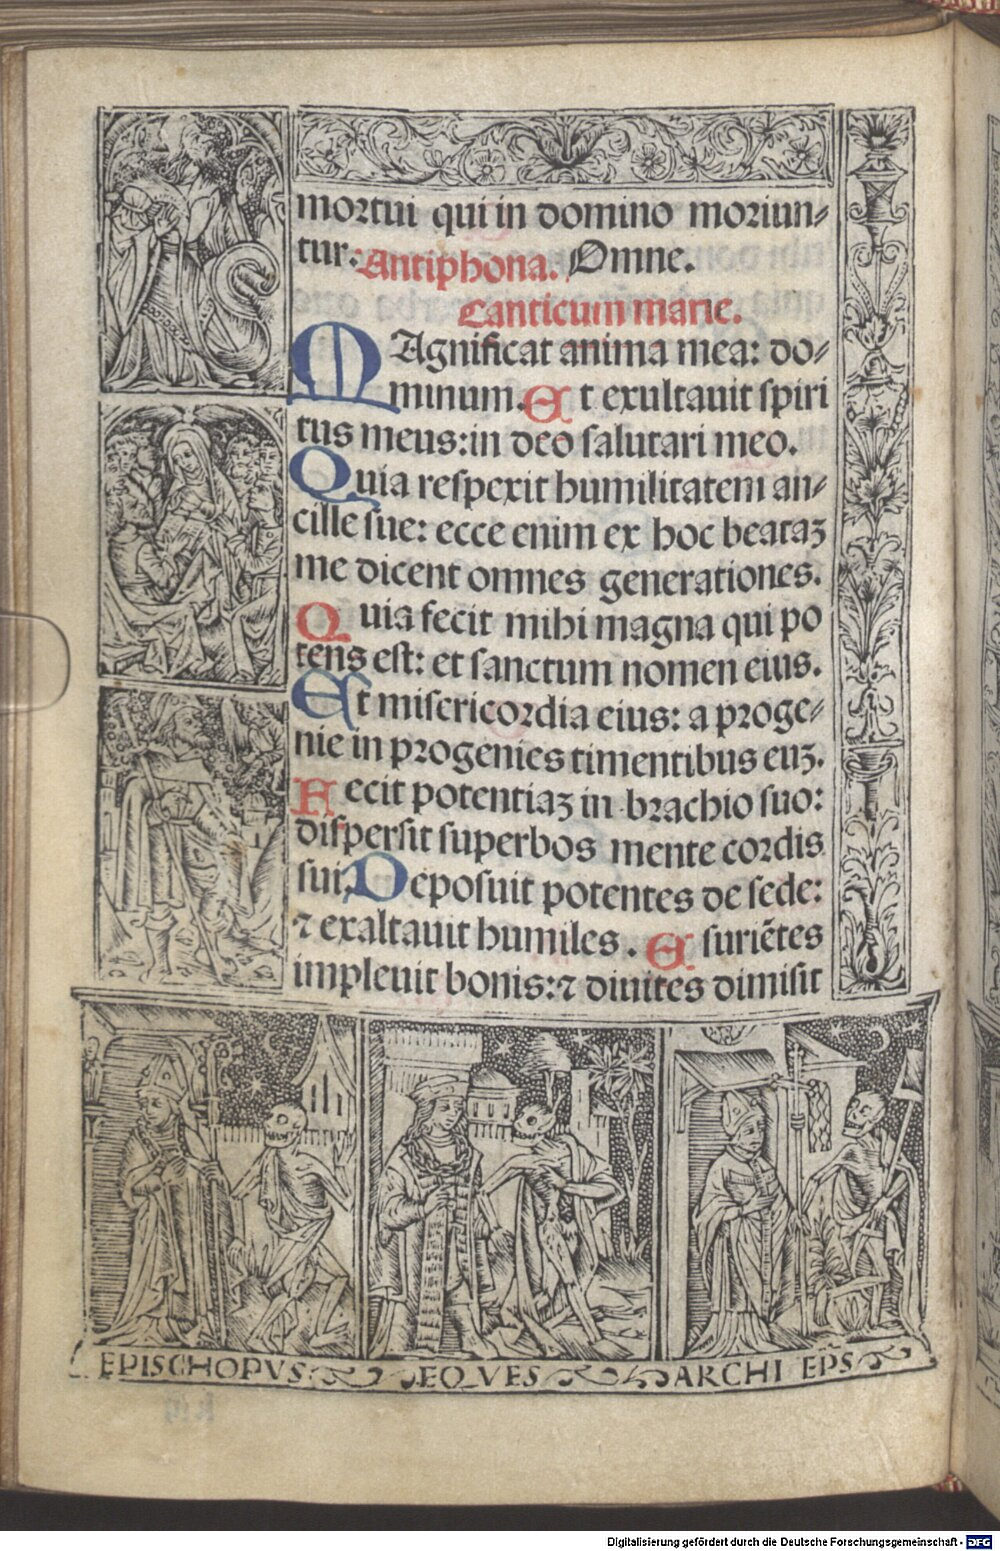 mortui qui in domino moriun-
tur. Antiphona. Omne.
Canticum marie.
MAgnificat anima mea: do-
minum. Et exultauit spiri
tus meus: in deo salutari meo.
Quia respexit humilitatem an-
cille sue: ecce enim ex hoc beataꝫ
me dicent omnes generationes.
Quia fecit mihi magna qui po
tens est: et sanctum nomen eius.
Et misericordia eius: a proge-
nie in progenies timentibus euꝫ.
Fecit potentiaꝫ in brachio suo:
dispersit superbos mente cordis
sui. Deposuit potentes de sede:
⁊ exaltauit humiles. Esuriẽtes
impleuit bonis: ⁊ diuites dimisit
EPISCHOPVS EQVES ARCHI EPS
Digitalisierung gefördert durch die Deutsche Forschungsgemeinschaft - DFG